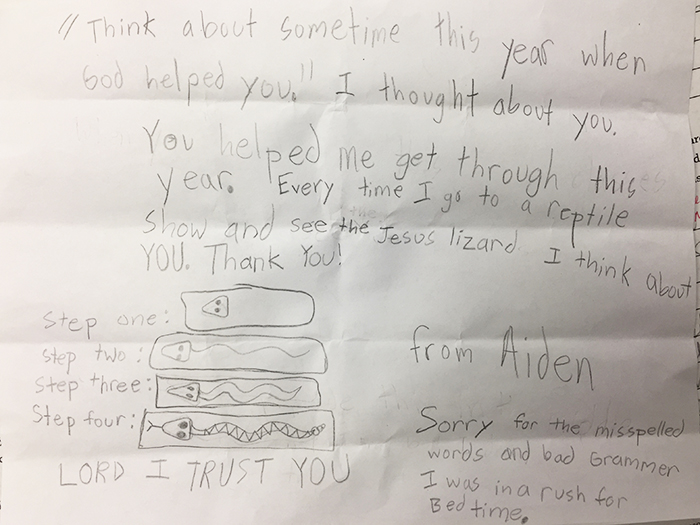 "Think about sometime this year when
God helped you." I thought about you.
You helped me get through this
year. Every time I go to a reptile
show and see the Jesus lizard I think about
YOU. Thank You!
Step one:
Step two:
Step three:
Step four:
LORD I TRUST YOU
from Aiden
Sorry for the misspelled
words and bad Grammer
I was in a rush for
Bedtime.